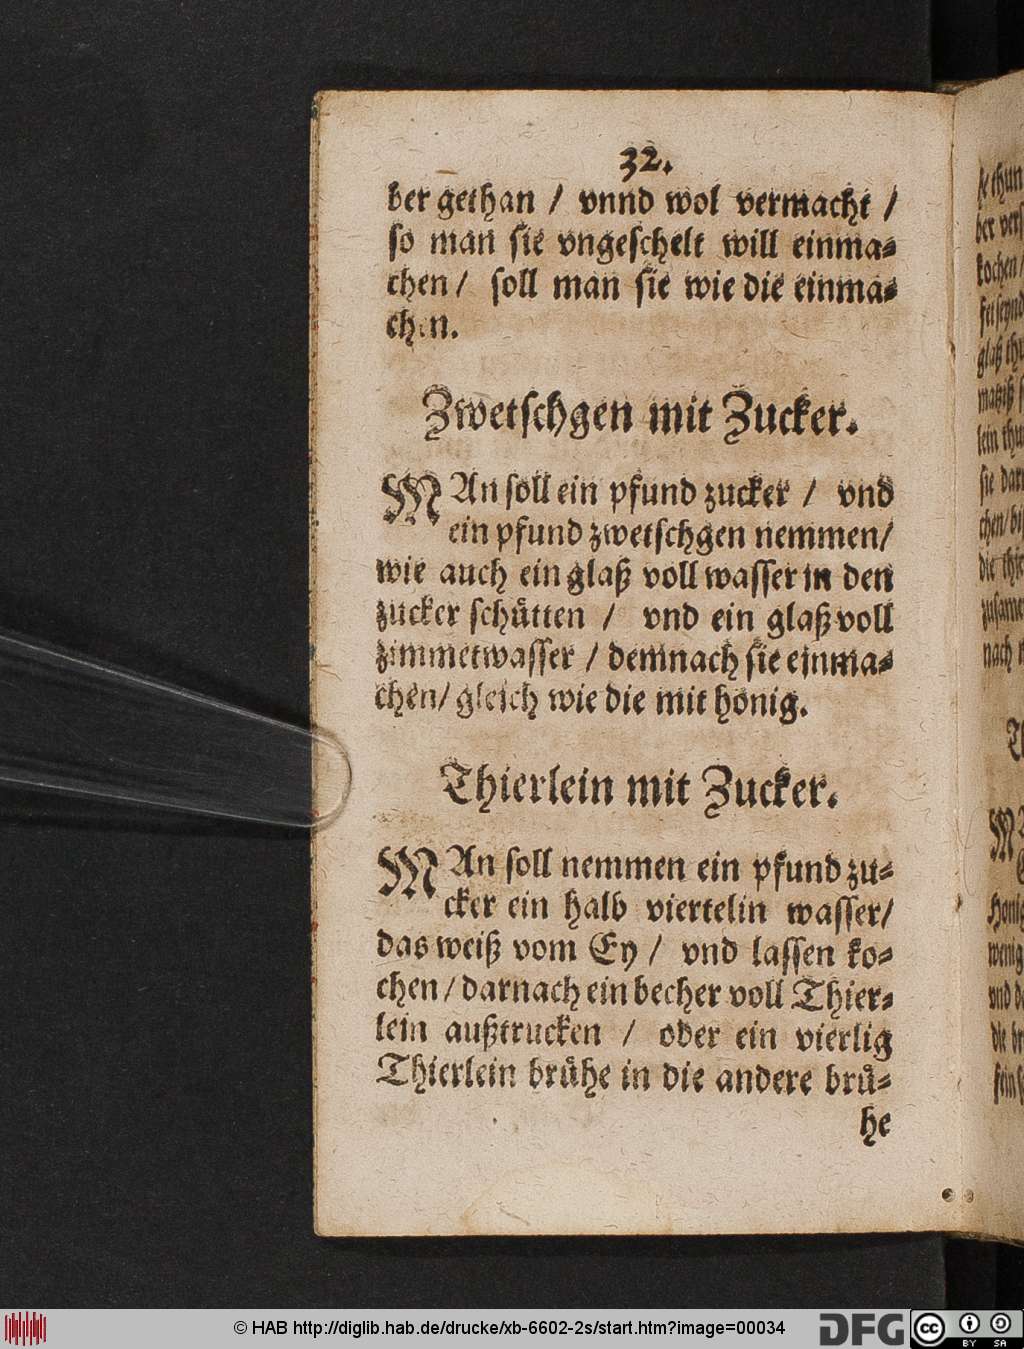 32.
ber gethan / vnnd wol vermacht /
so man sie vngeschelt will einma-
chen / soll man sie wie die einma-
chen.
Zwetschgen mit Zucker.
MAn soll ein pfund zucker / vnd
ein pfund zwetschgen nemmen/
wie auch ein glaß voll wasser in den
zucker schütten / vnd ein glaß voll
zimmetwasser / demnach sie einma-
chen/ gleich wie die mit honig.
Thierlein mit Zucker.
MAn soll nemmen ein pfund zu-
cker ein halb viertelin wasser/
das weiß vom Ey / vnd lassen ko-
chen / darnach ein becher voll Thier-
lein außtrucken / oder ein vierlig
Thierlein brühe in die andere brü-
he
© HAB http://diglib.hab.de/drucke/xb-6602-2s/start.htm?image=00034
DFG
cc
BY SA